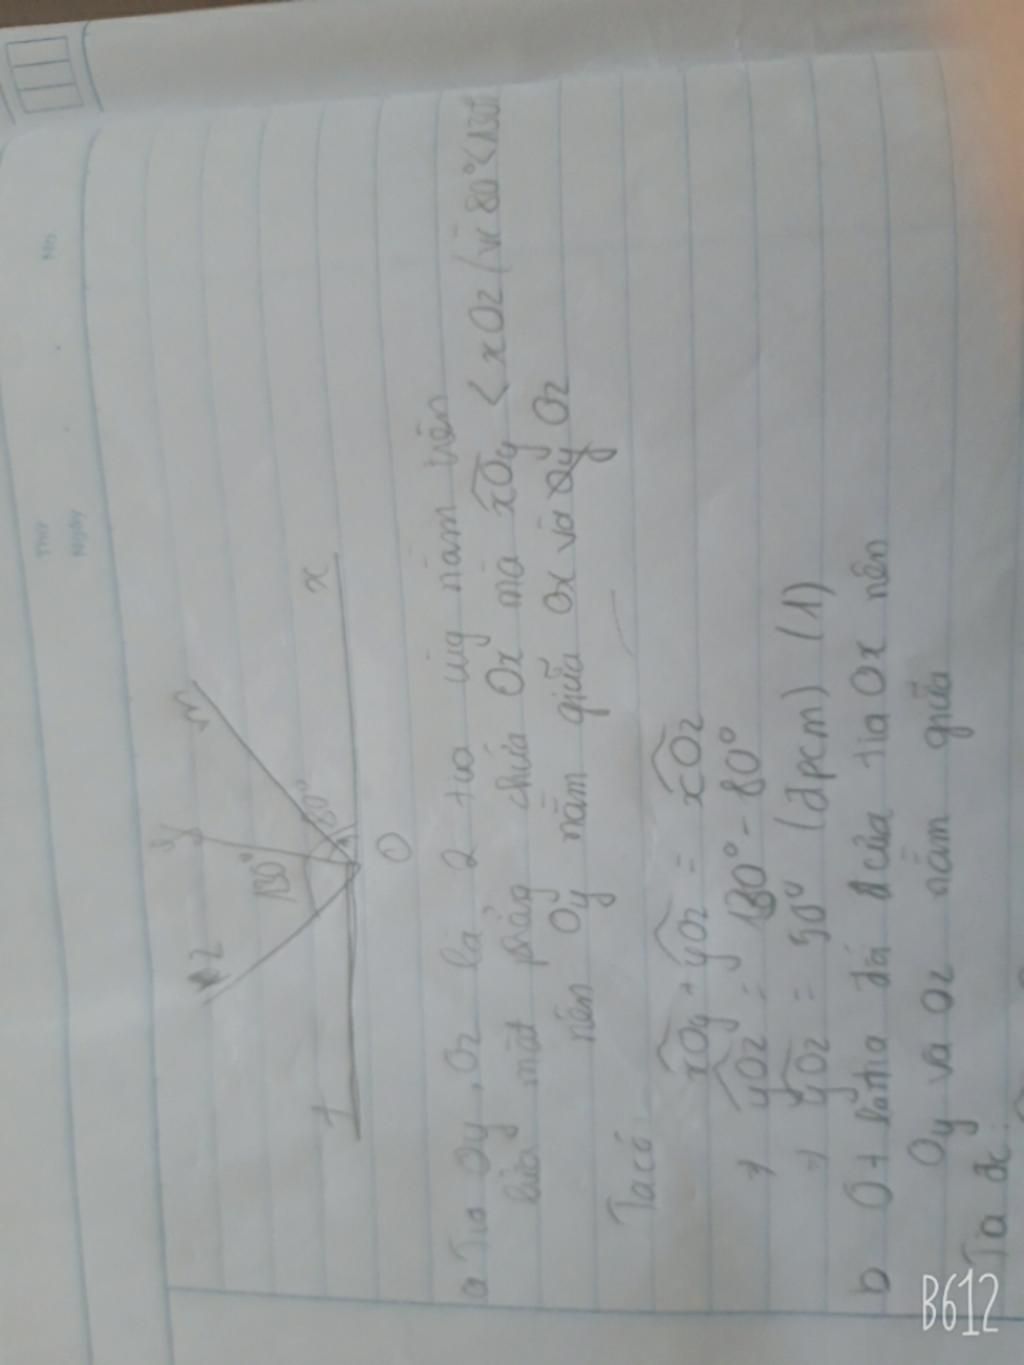 Thứ
Ngày
No
z
y
m
130°
80°
t
O
x
a Tia Oy, Oz là 2 tia cùng nằm trên
nửa mặt phẳng chứa Ox mà xOy < xOz (vì 80° < 130°
nên Oy nằm giữa Ox và Oz
Ta có:
xOy + yOz = xOz
=> yOz = 130° - 80°
=> yOz = 50° (đpcm) (1)
b Ot là tia đối của tia Ox nên
Oy và Oz nằm giữa
Ta đc:
B612